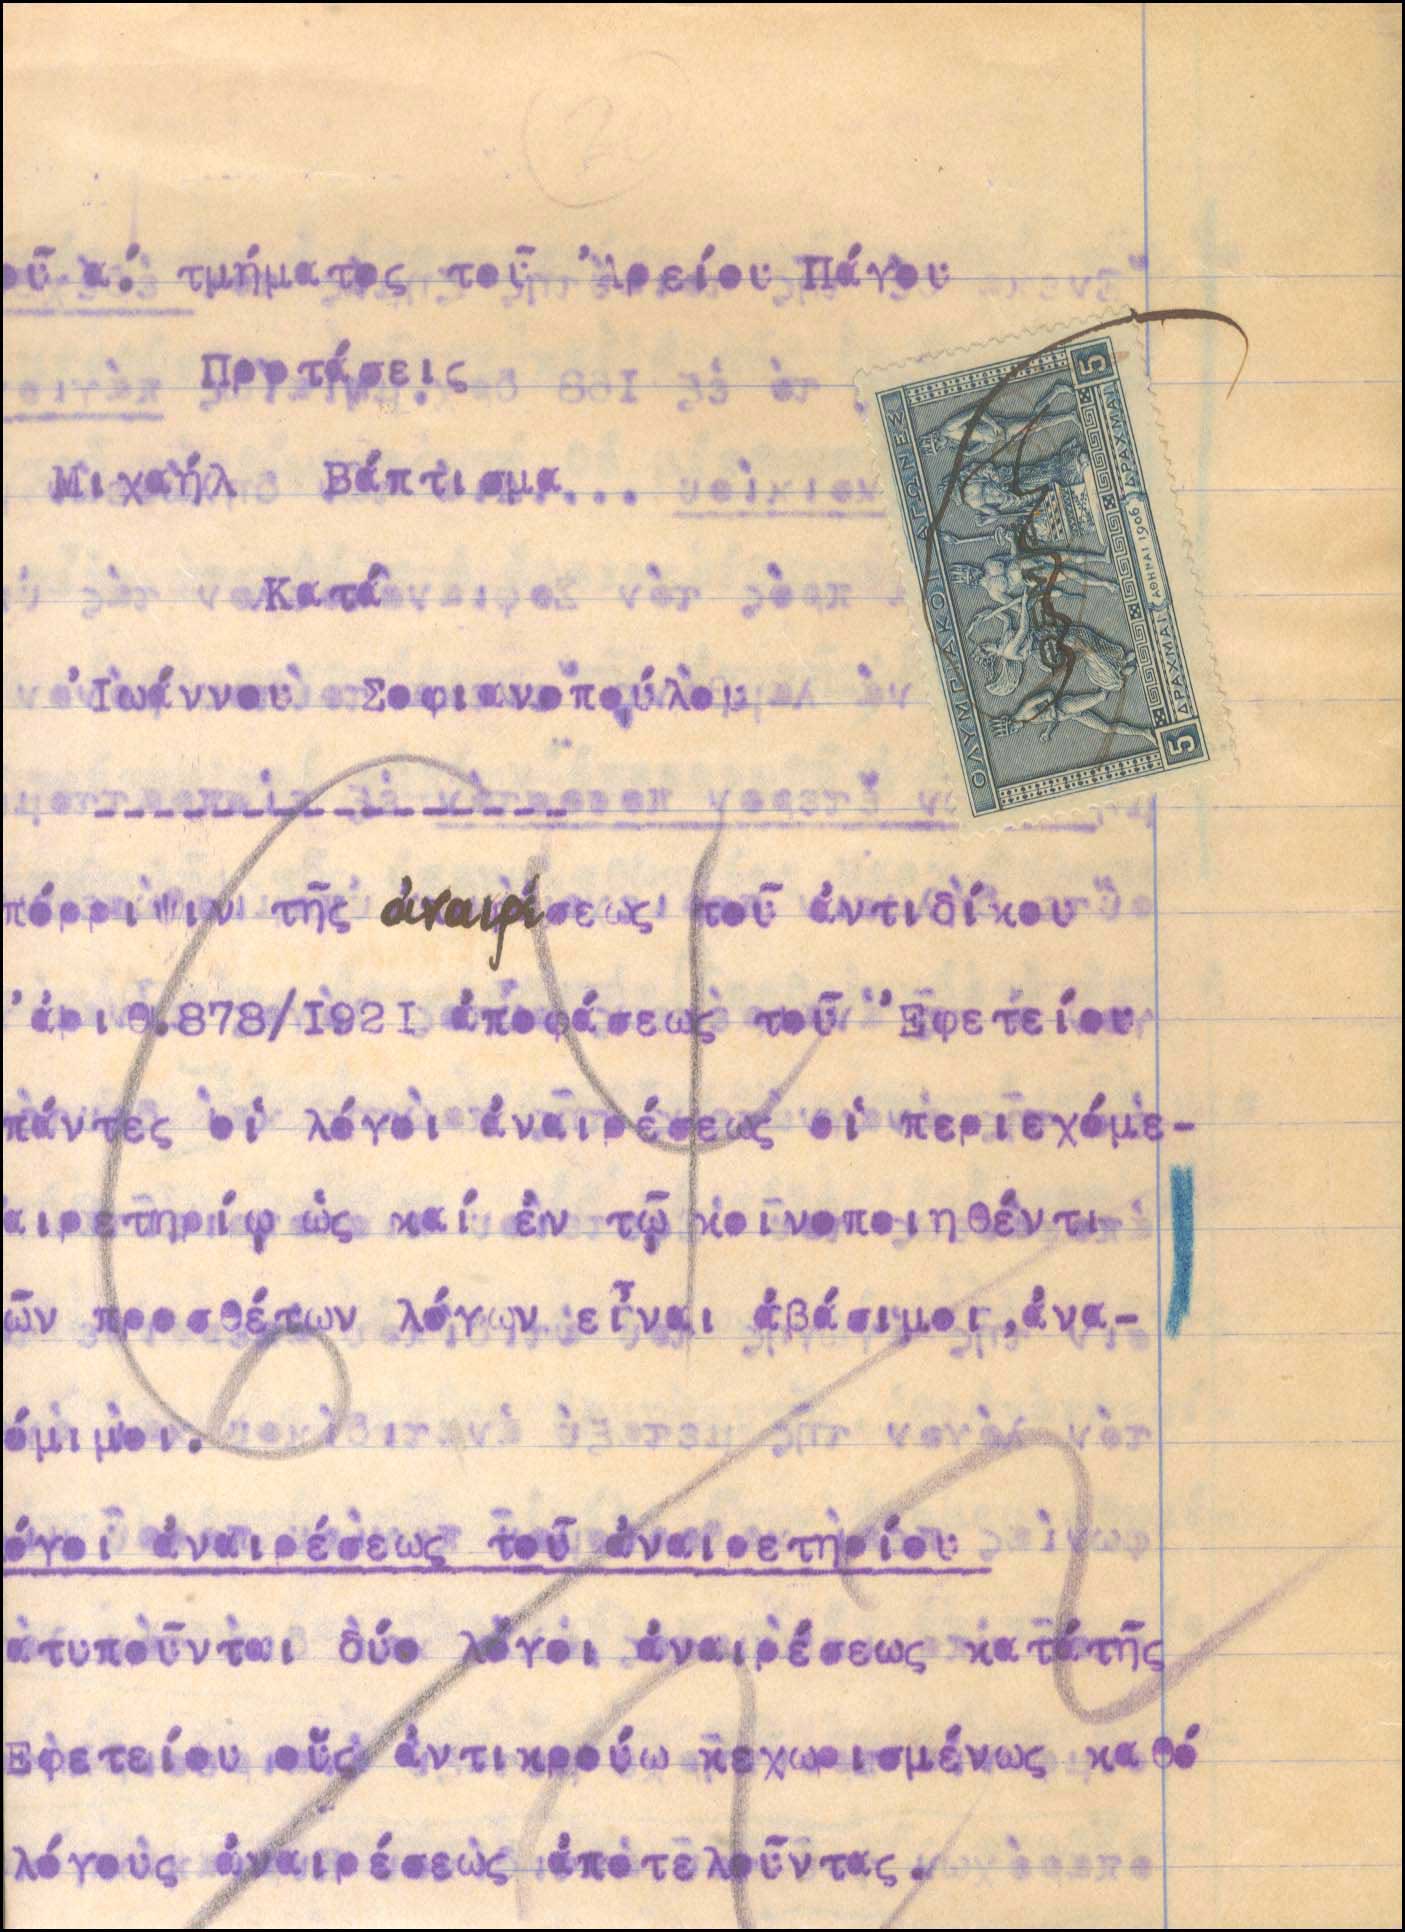 οῦ α΄. τμήματος τοῦ Ἀρείου Πάγου
Προτάσεις
Μιχαήλ Βάπτισμα...
Κατά
Ἰωάννου Σοφιανοπούλου
πόρριψιν τῆς ἀναιρέσεως τοῦ ἀντιδίκου
'ἀριθ.878/I92I ἀποφάσεως τοῦ Ἐφετείου
πάντες οἱ λόγοι ἀναιρέσεως οἱ περιεχόμε-
αιρετηρίῳ ὡς καί ἐν τῷ κοινοποιηθέντι
ῶν προσθέτων λόγων εἶναι ἀβάσιμοι,ἀνα-
όμιμοι.
όγοι ἀναιρέσεως τοῦ ἀναιρετηρίου
ατυποῦνται δύο λόγοι ἀναιρέσεως κατάτῆς
Ἐφετείου οὕς ἀντικρούω κεχωρισμένως καθό
λόγους ἀναιρέσεως ἀποτελοῦντας.
ΟΛΥΜΠΙΑΚΟΙ ΑΓΩΝΕΣ
5 ΔΡΑΧΜΑΙ ΑΘΗΝΑΙ 1906 ΔΡΑΧΜΑΙ 5